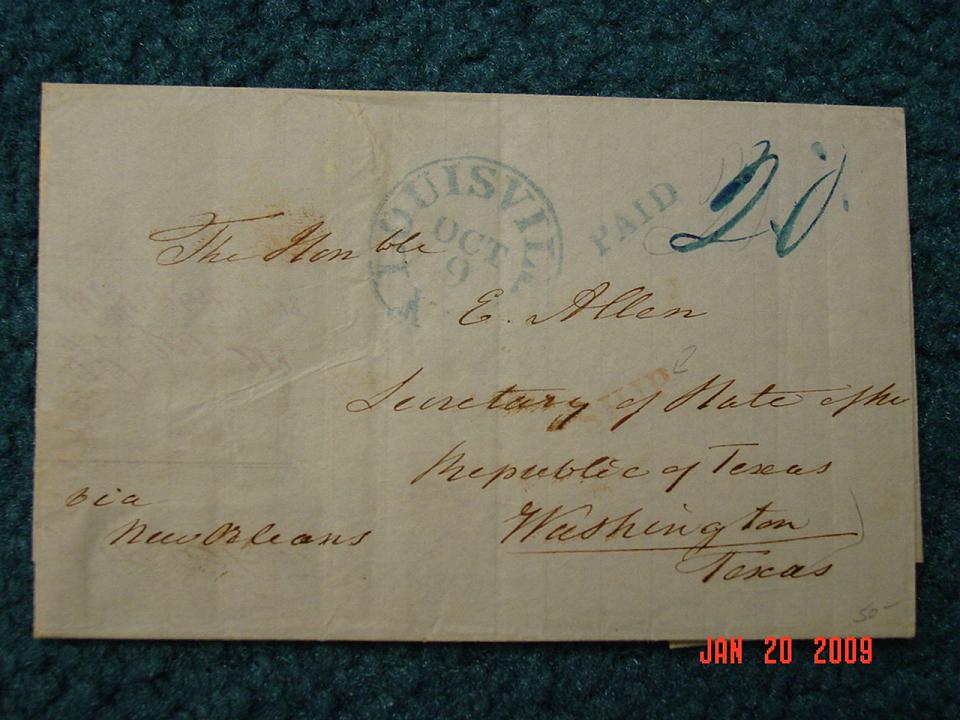 LOUISVILLE
OCT
9
PAID
20
The Honble
E. Allen
PAID
Secretary of State of the
Republic of Texas
Washington
Texas
via
New Orleans
50-
JAN 20 2009